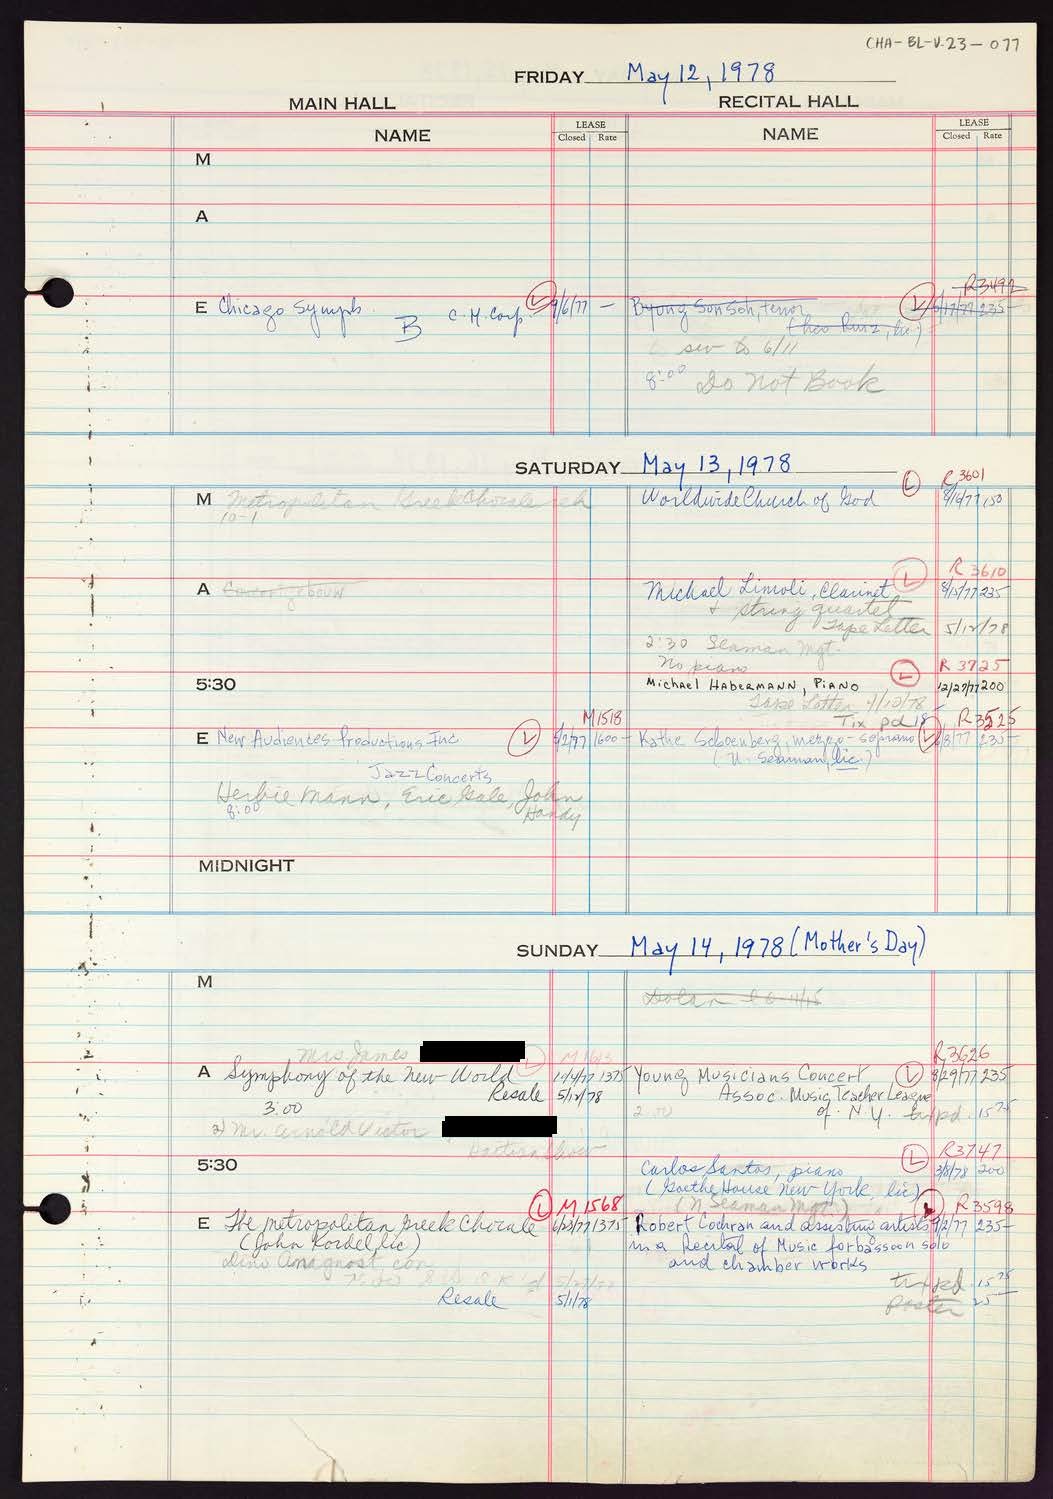 CHA-BL-V.23-077
FRIDAY May 12, 1978
MAIN HALL RECITAL HALL
NAME LEASE Closed Rate NAME LEASE Closed Rate
M
A
R3492
E Chicago Symph. B C.M. Corp. L 9/6/77 — Byong Son Soh, tenor L 6/17/77 235—
(Theo Ruiz, lic.)
sew to 6/11
8:00 Do Not Book
SATURDAY May 13, 1978
L R3601
M Metropolitan Greek Chorale Worldwide Church of God 150
10-1
L R 3610
A Concertgebouw Michael Limoli, Clarinet 235
+ string quartet
Tape Letter 5/12/78
2:30 Seaman Mgt.
No piano
L R 3725
5:30 Michael Habermann, Piano 12/27/77 200
Tape Letter 4/12/78
M1518 Tix pd R3525
E New Audiences Productions Inc L 5/2/77 1600— Kathe Schoenberg, mezzo-soprano L 235—
Jazz Concerts (N. Seaman, lic.)
Herbie Mann, Eric Gale, John Handy
8:00
MIDNIGHT
SUNDAY May 14, 1978 (Mother's Day)
M
Dolan
Mrs James L M1613 R3626
A Symphony of the New World 1375 Young Musicians Concert L 8/29/77 235—
Resale 5/12/78 Assoc. Music Teacher League
3:00 2:00 of N.Y. tix pd. 15
Mr. Arnold Victor
L R3747
5:30 Carlos Santos, piano 3/8/78 200
(Goethe House New York, lic)
L M1568 (N Seaman Mgt.) L R3598
E The Metropolitan Greek Chorale 1375 Robert Cochran and assisting artists 235—
(John Kordel, lic) in a Recital of Music for bassoon solo
Dino Anagnost, con. and chamber works
tix pd. 15
Resale 5/1/78 Poster 25